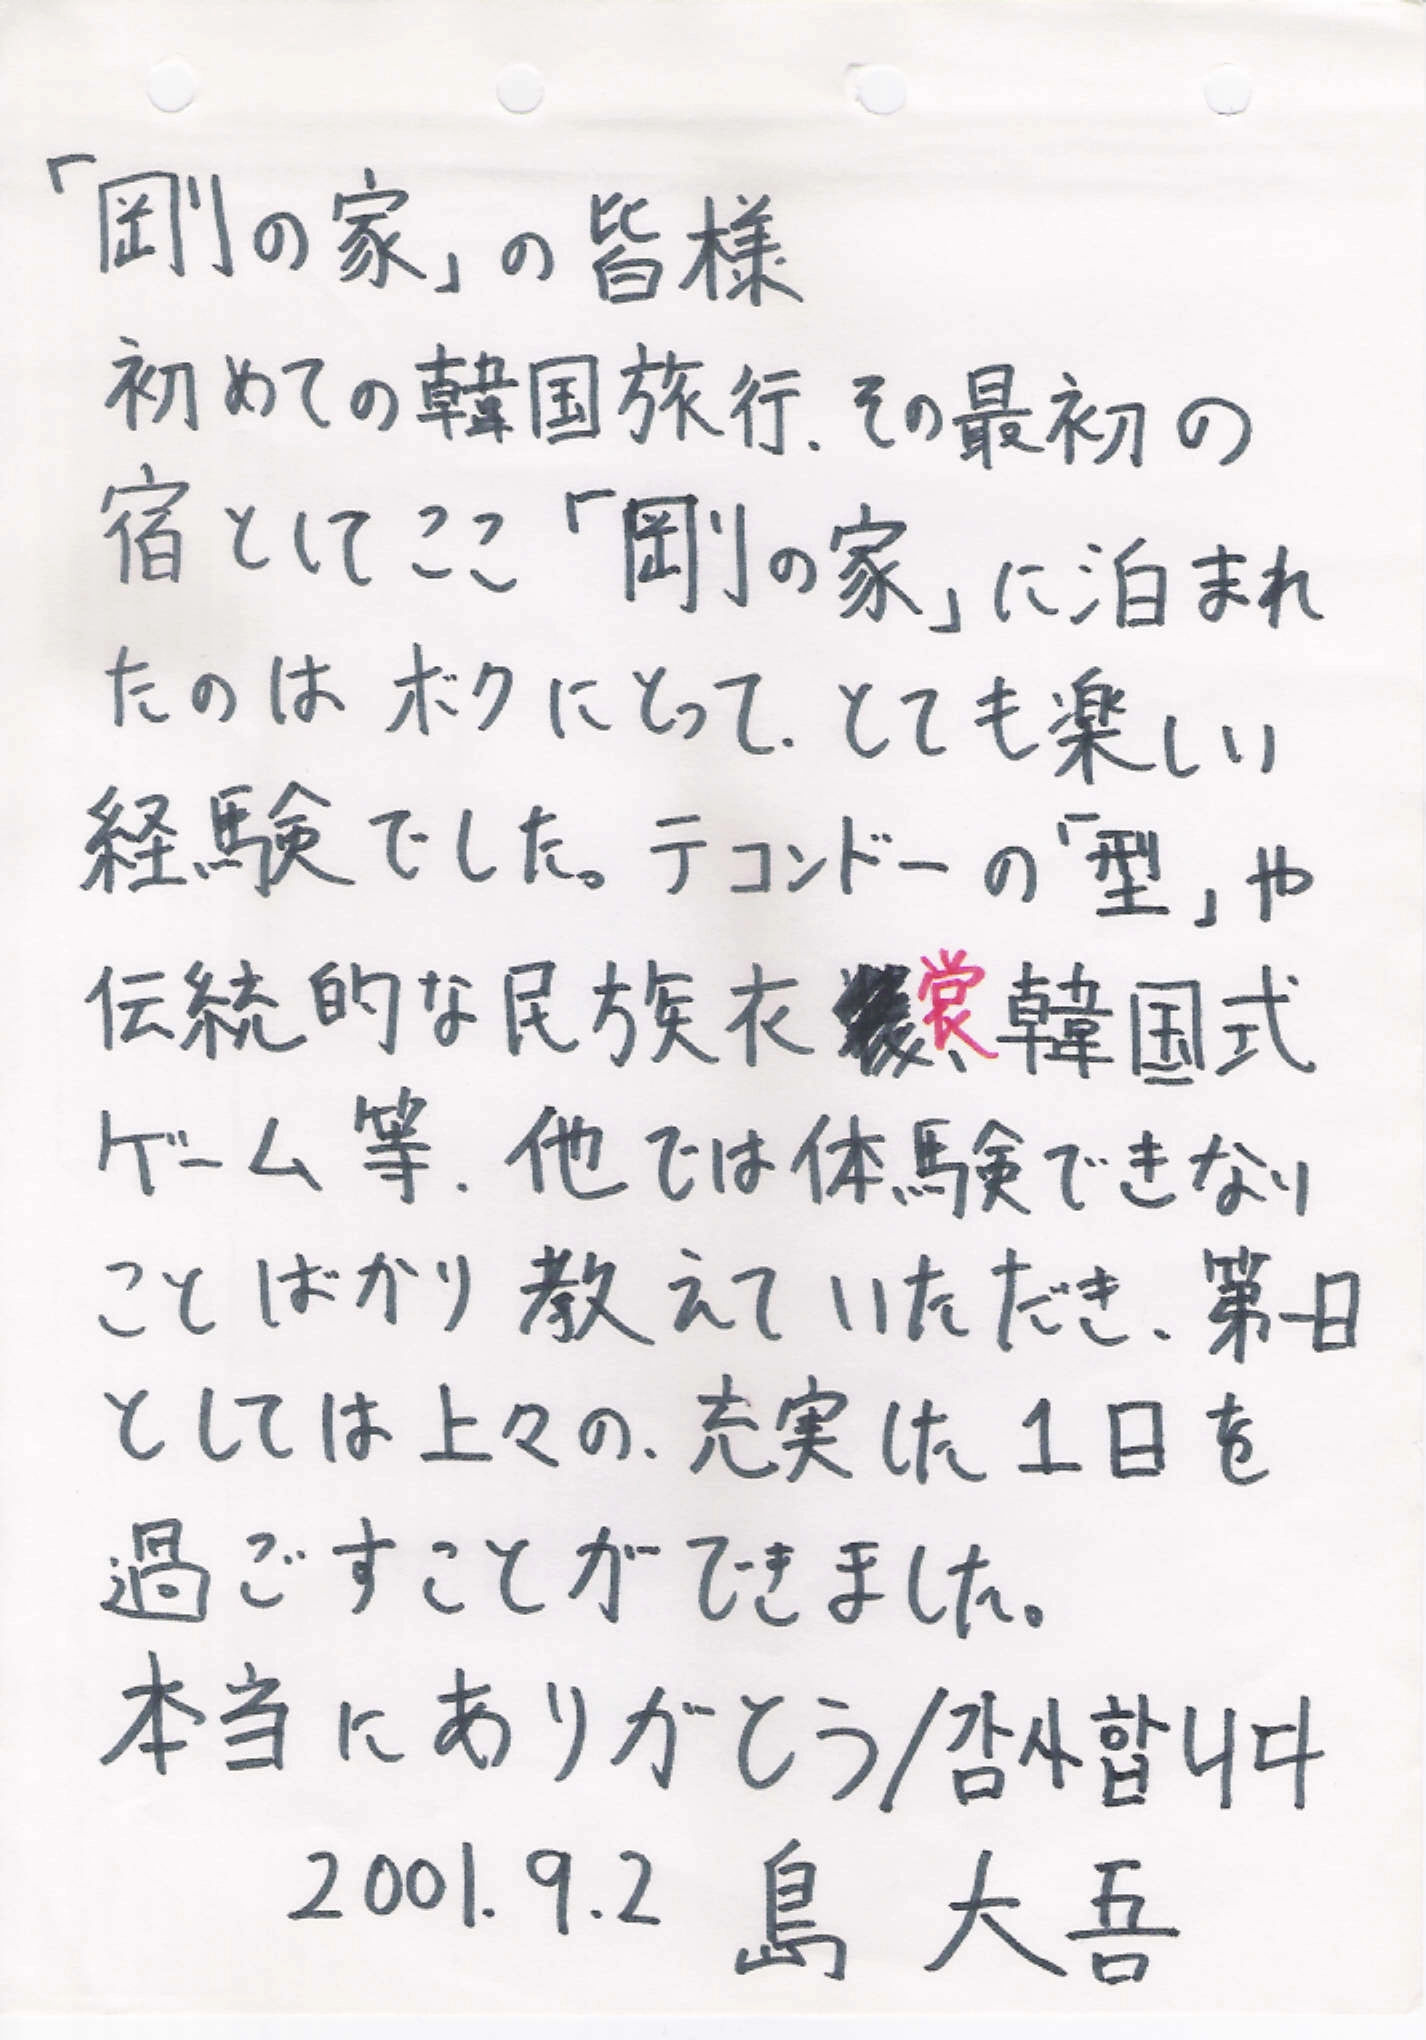 「剛の家」の皆様
初めての韓国旅行、その最初の
宿としてここ「剛の家」に泊まれ
たのはボクにとって、とても楽しい
経験でした。テコンドーの「型」や
伝統的な民族衣裳、韓国式
ゲーム等、他では体験できない
ことばかり教えていただき、第一日
としては上々の、充実した1日を
過ごすことができました。
本当にありがとう/감사합니다
2001.9.2 島 大吾